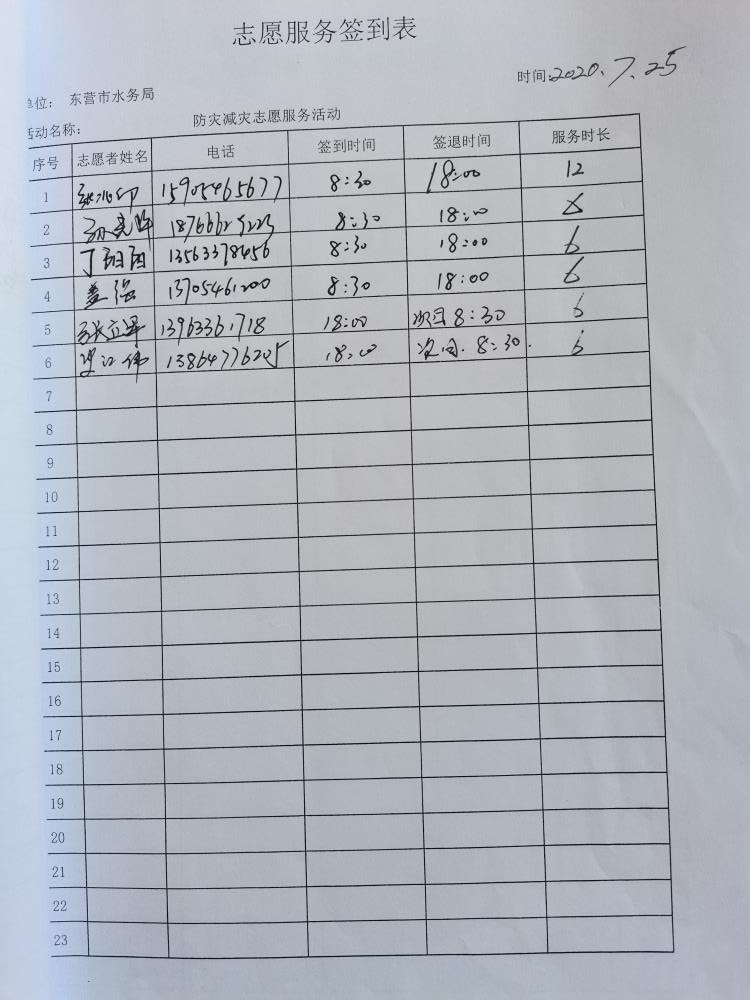 志愿服务签到表
时间:2020.7.25
单位: 东营市水务局
活动名称: 防灾减灾志愿服务活动
序号 志愿者姓名 电话 签到时间 签退时间 服务时长
1 15905465677 8:30 18:00 12
2 8:30 18:00
3 丁阳阳 13563378456 8:30 18:00 6
4 盖强 13705461200 8:30 18:00 6
5 13963361718 18:00 次日8:30 6
6 13864776205 18:00 次日.8:30. 6
7
8
9
10
11
12
13
14
15
16
17
18
19
20
21
22
23